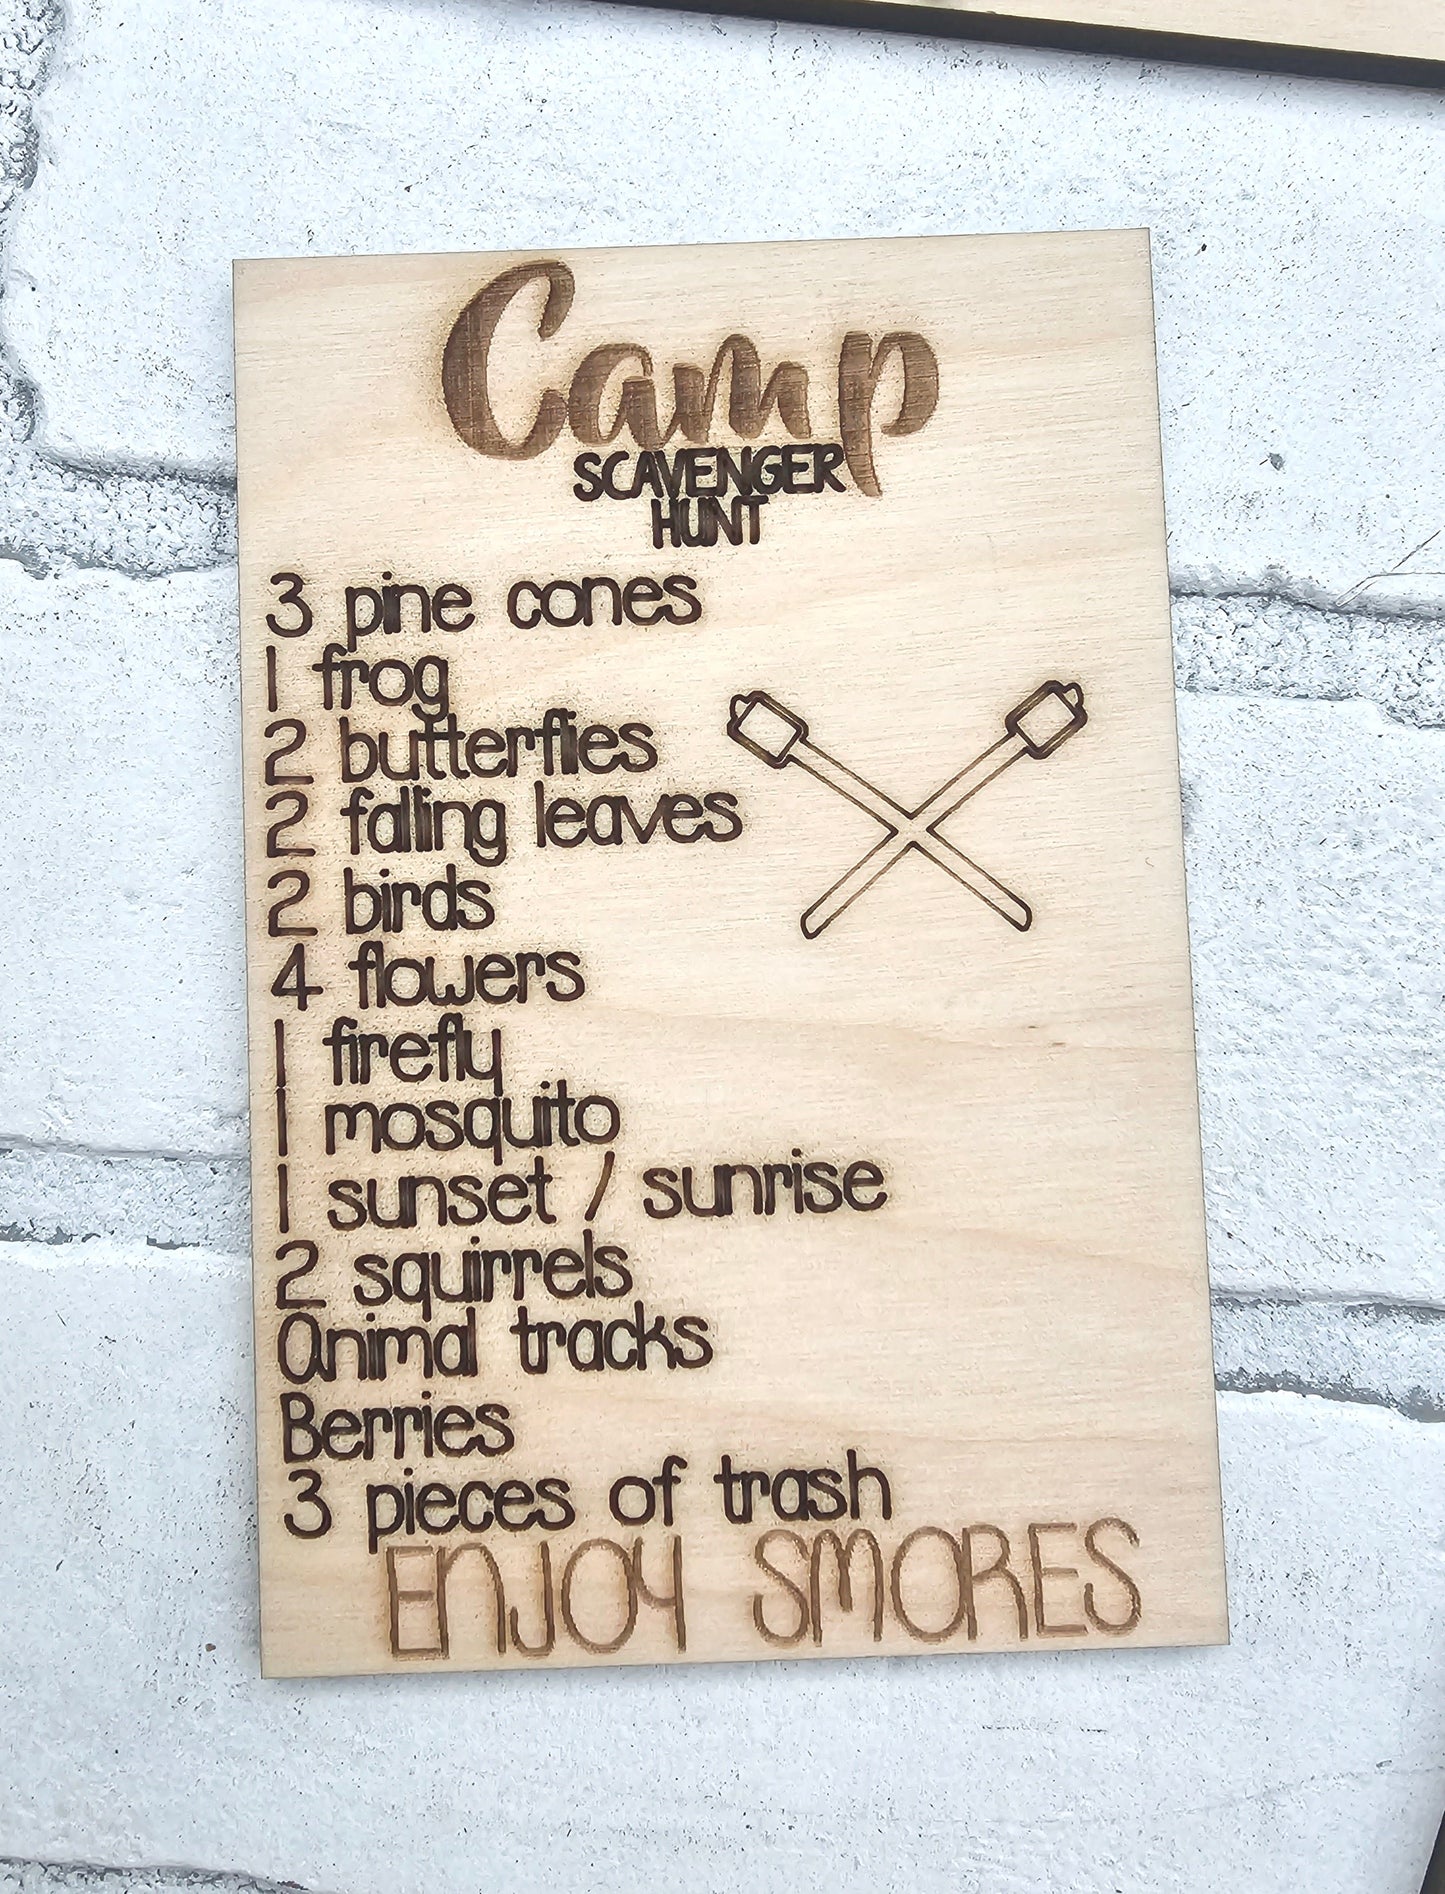 Camp
SCAVENGER
HUNT
3 pine cones
1 frog
2 butterflies
2 falling leaves
2 birds
4 flowers
1 firefly
1 mosquito
1 sunset / sunrise
2 squirrels
Animal tracks
Berries
3 pieces of trash
ENJOY SMORES